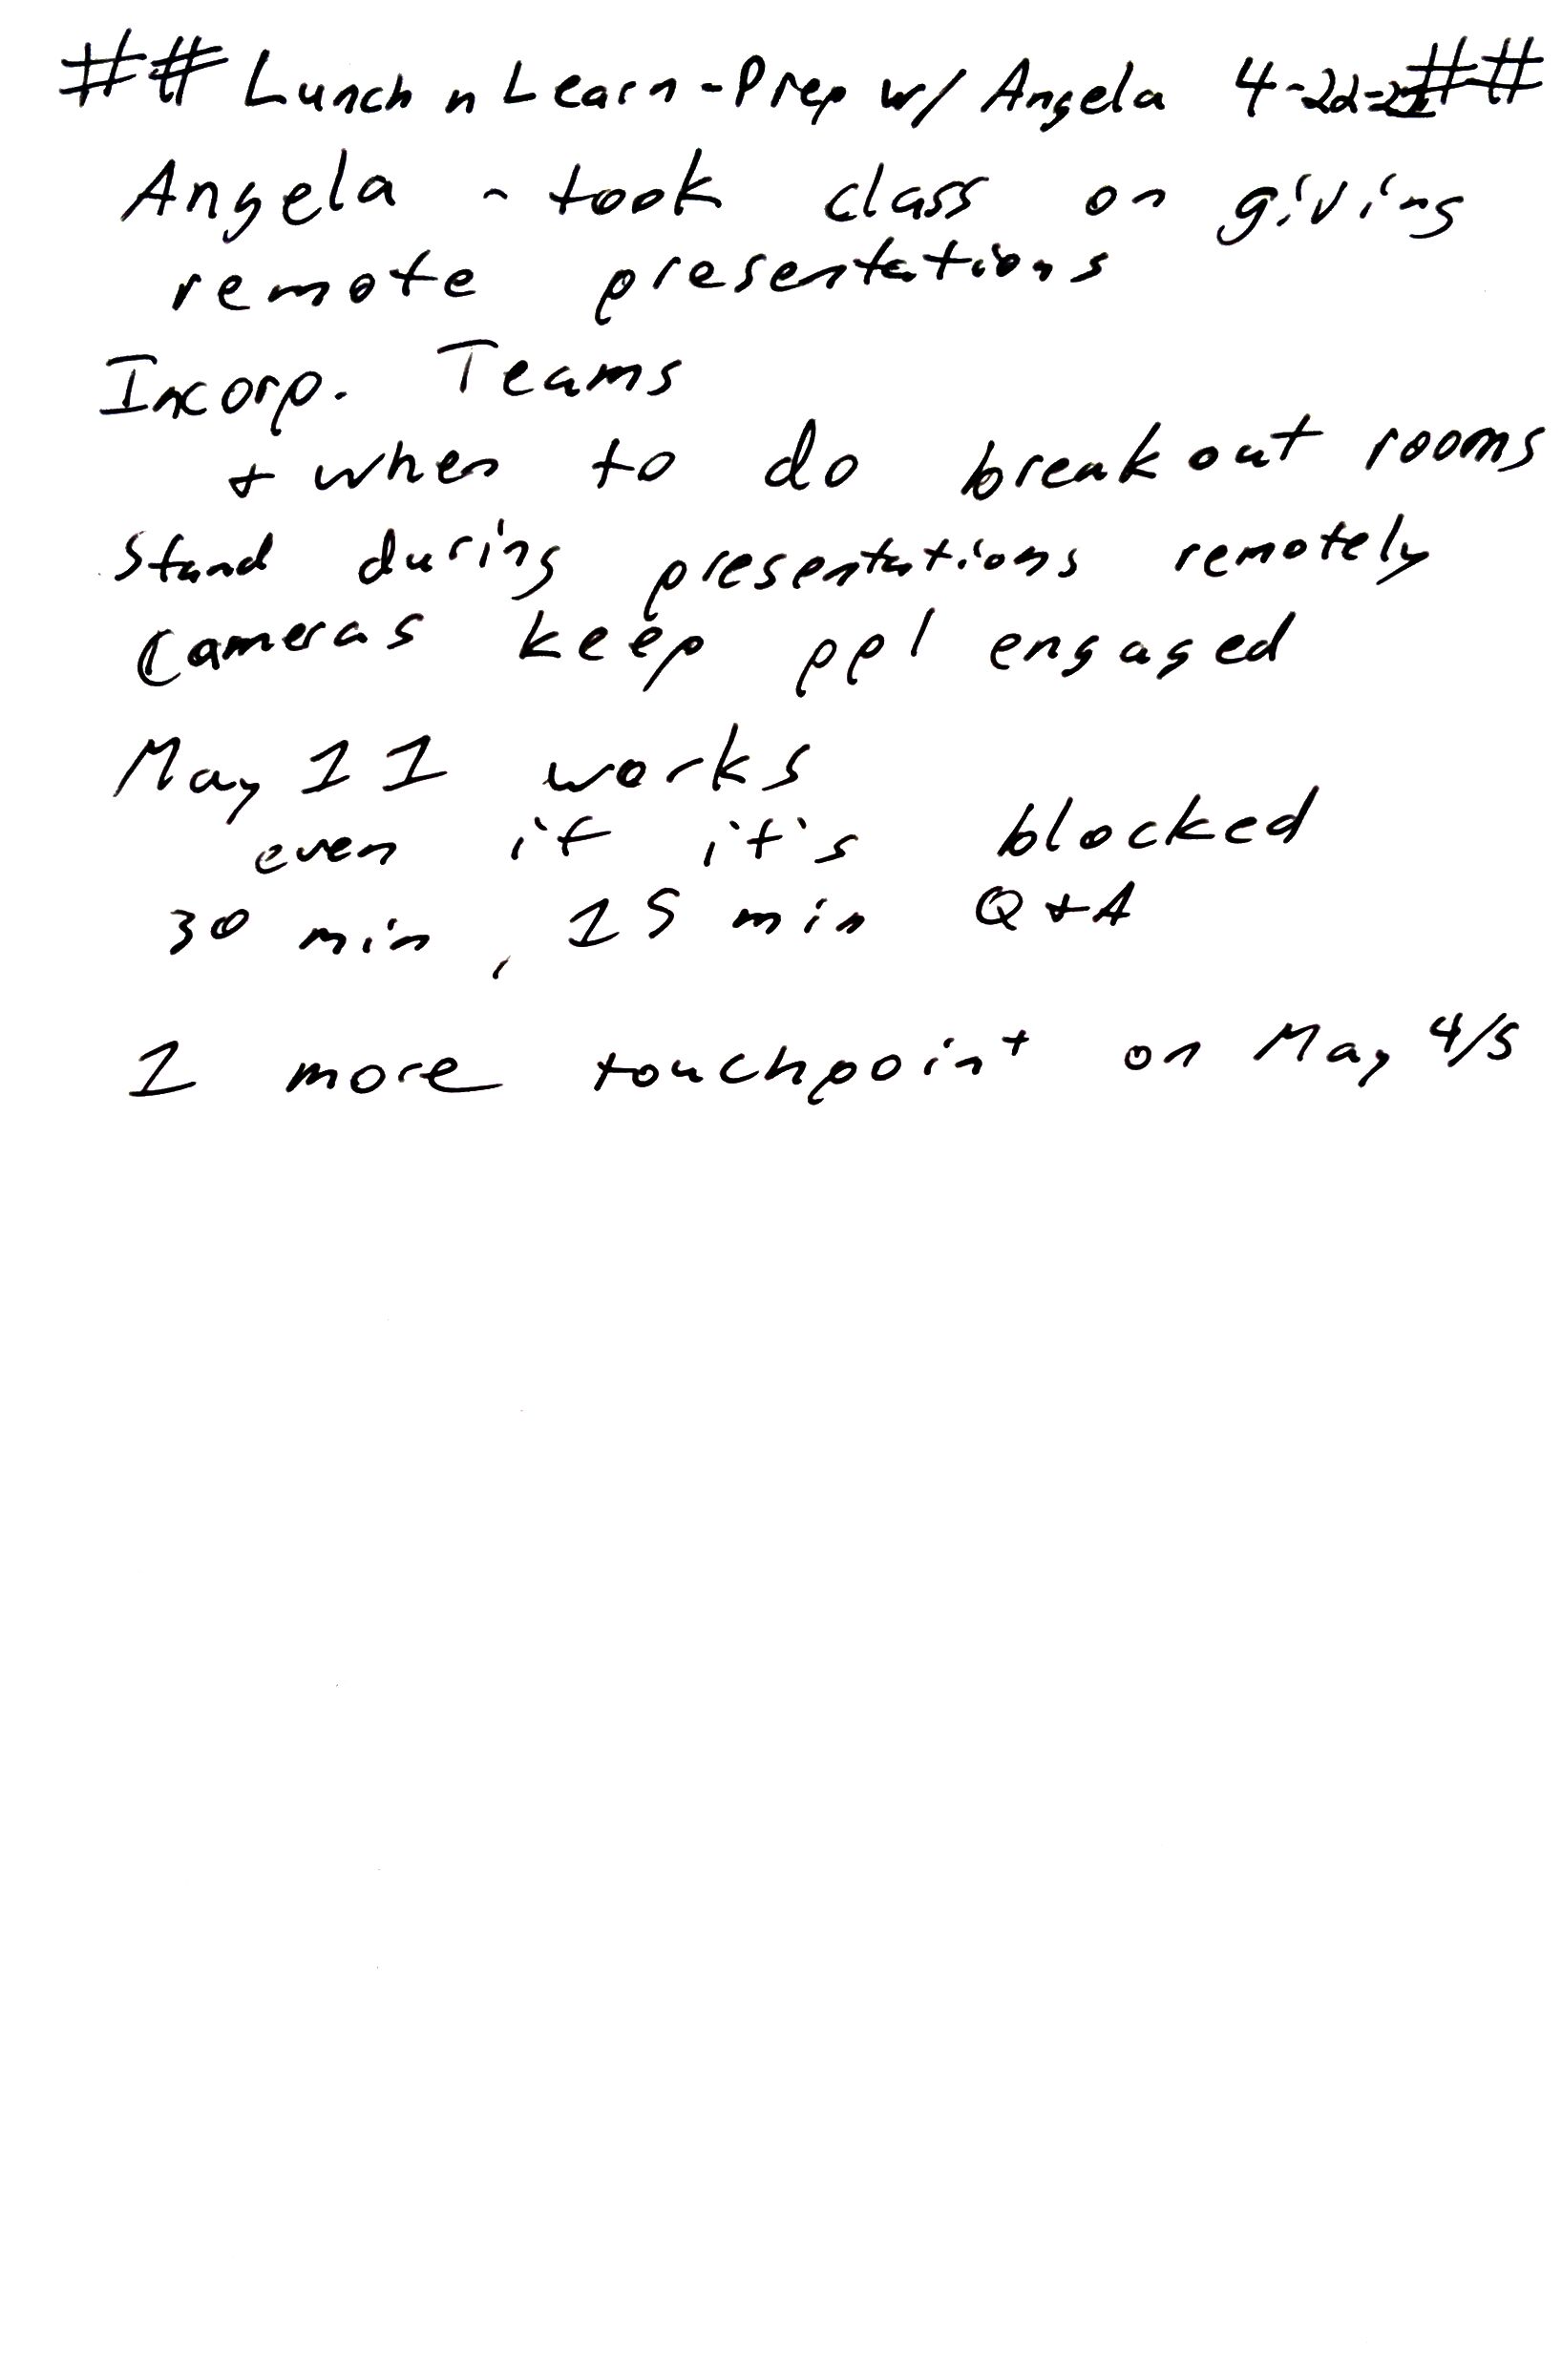 ## Lunch n Learn-Prep w/ Angela 4-22-21##
Angela - took class on giving
remote presentations
Incorp. Teams
+ when to do breakout rooms
Stand during presentations remotely
Cameras keep ppl engaged
May 11 works
even if it's blocked
30 min, 15 min Q+A
1 more touchpoint on May 4/5